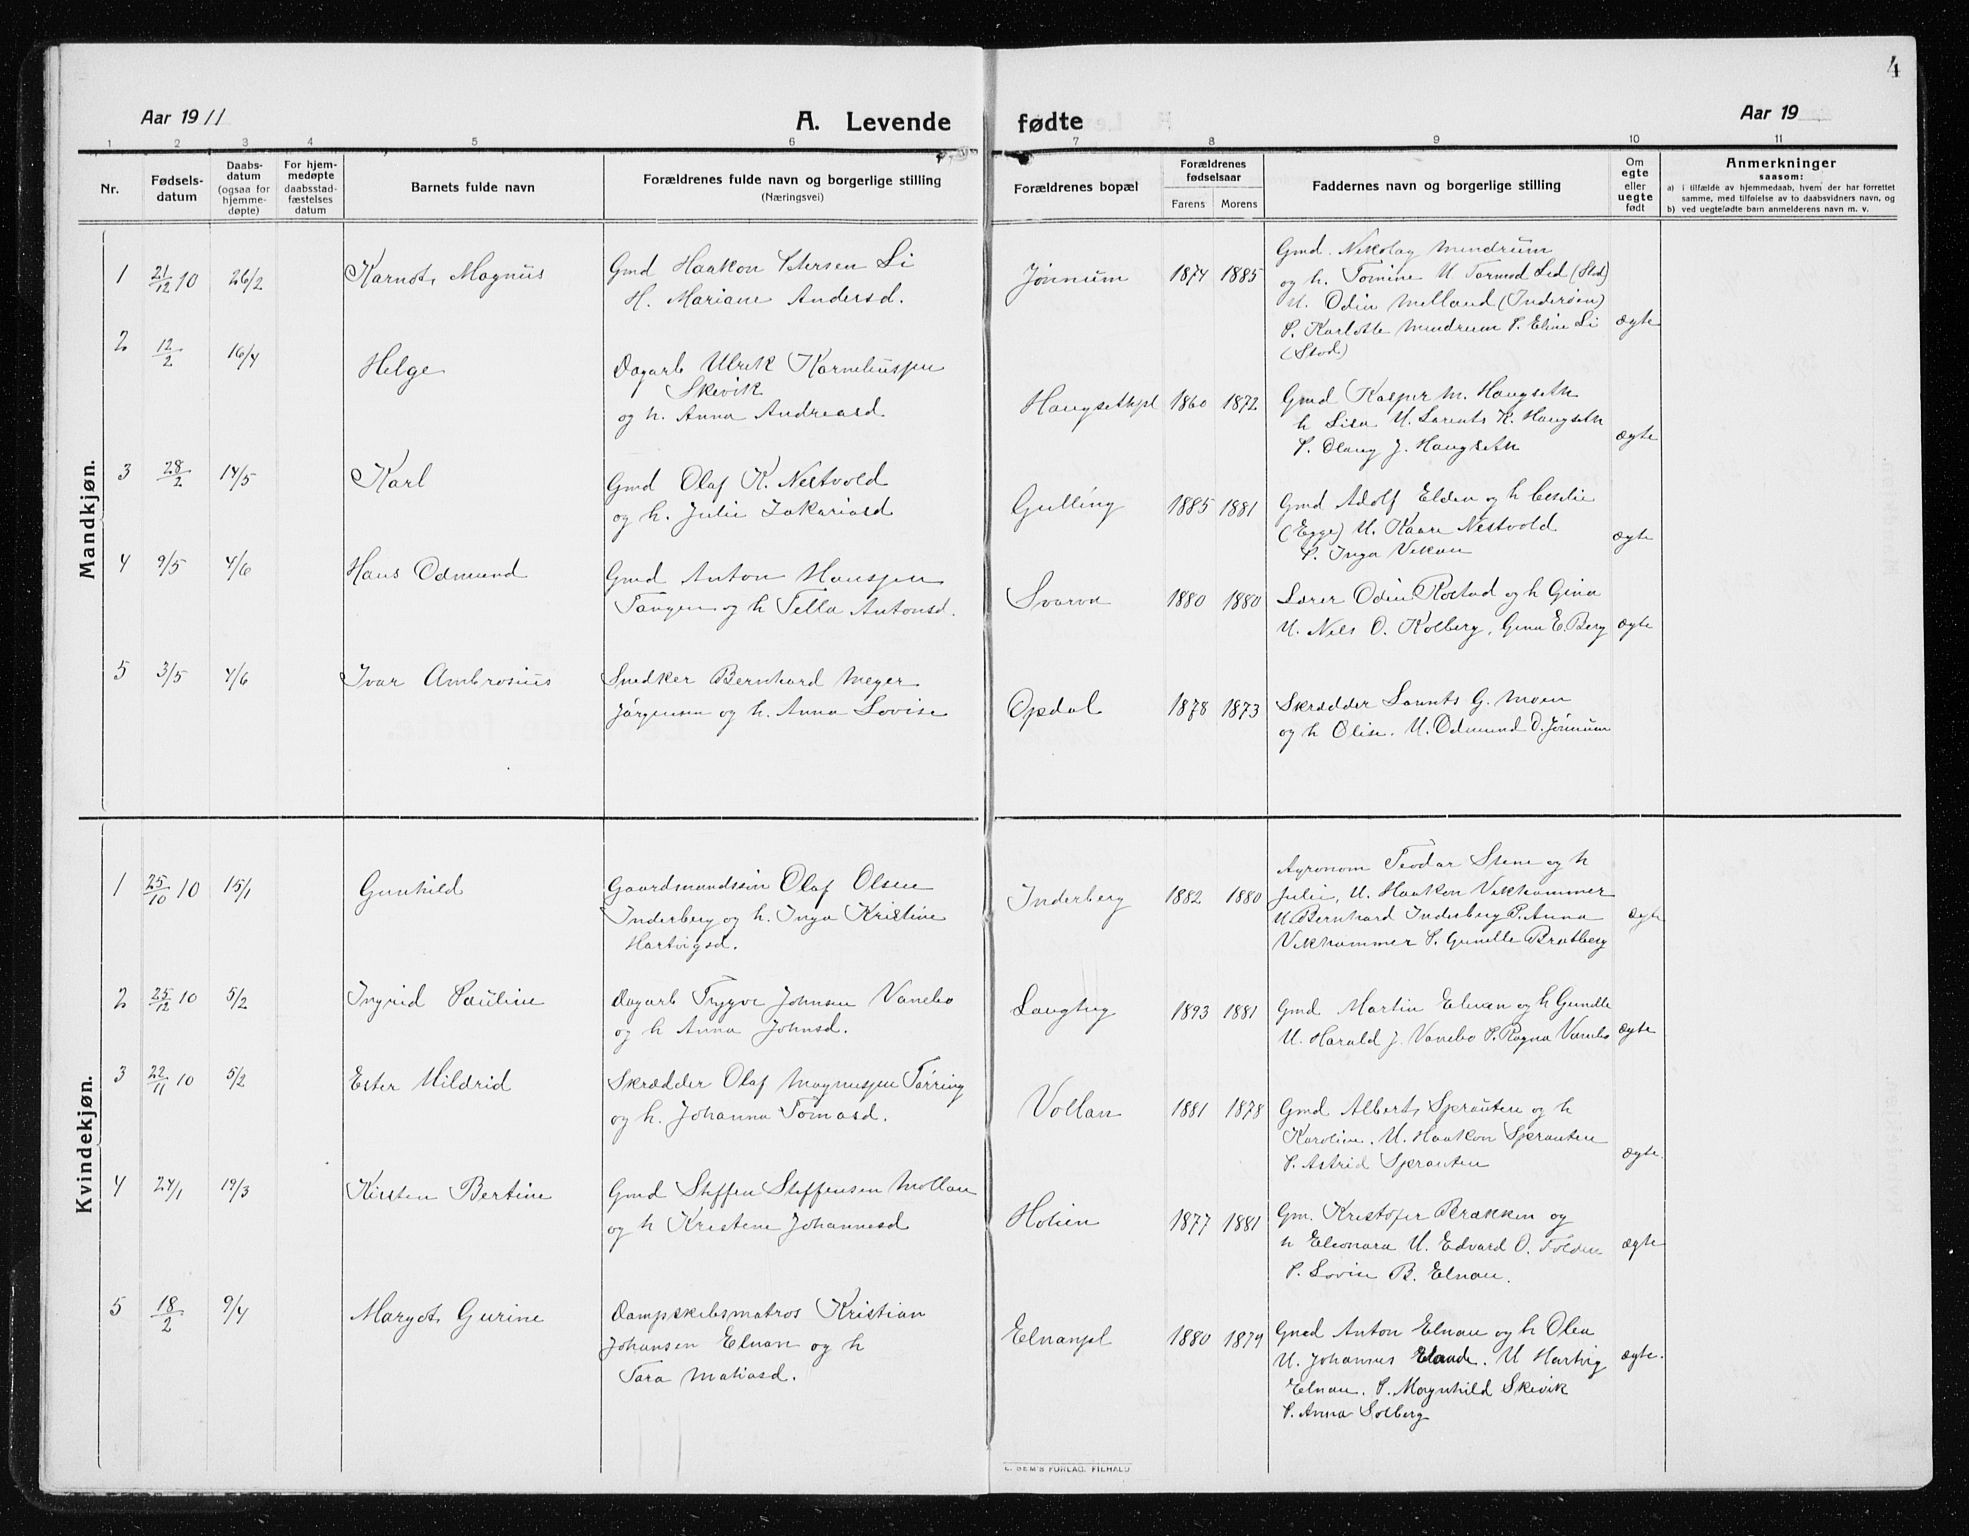 4
Aar 1911
A. Levende fødte
Aar 19
1 2 3 4 5 6 7 8 9 10 11
Nr.
Fødsels-
datum
Daabs-
datum
(ogsaa for
hjemme-
døpte)
For hjem-
medøpte
daabsstad-
fæstelses
datum
Barnets fulde navn
Forældrenes fulde navn og borgerlige stilling
(Næringsvei)
Forældrenes bopæl
Forældrenes
fødselsaar
Farens Morens
Faddernes navn og borgerlige stilling
Om
egte
eller
uegte
født
Anmerkninger
saasom:
a) i tilfælde av hjemmedaab, hvem der har forrettet
samme, med tilføielse av to daabsvidners navn, og
b) ved uegtefødte barn anmelderens navn m. v.
Mandkjøn.
1 21/12 10 26/2 Karnot Magnus
Gmd Haakon Petersen Li
H. Mariane Andersd.
Jønnum 1874 1885
Gmd. Nikolay Mindrum
og h. Tomine U Tormod Lid (Stod)
U. Odin Melland (Inderøen)
P. Karlotte Mindrum P. Eline Li
(Stod)
ægte
2 12/2 16/4 Helge
Dagarb Ulrik Korneliussen
Skevik
og h. Anna Andreasd
Haugsethpl 1860 1872
Gmd Kasper M. Haugseth
h Lisa U. Lorents K. Haugseth
P. Olaug J. Haugseth
ægte
3 28/2 14/5 Karl
Gmd Olaf K. Nestvold
og h. Julie Zakariasd
Gulling 1885 1881
Gmd Adolf Elden og h Cesilie
(Egge) U. Kaare Nestvold
P. Inga Vekan
ægte
4 9/5 4/6 Hans Odmund
Gmd Anton Hanssen
Tangen og h Tella Antonsd.
Svarva 1880 1880
Lærer Odin Rostad og h Gina
U. Nels O. Kolberg, Gina E. Berg
ægte
5 3/5 4/6 Ivar Ambrosius
Snedker Bernhard Meyer
Jørgensen og h. Anna Lovise
Opdal 1878 1873
Skrædder Lornts G. Moen
og h Olise. U. Odmund O. Jønnum
Kvindekjøn.
1 25/10 10 15/1 Gunhild
Gaardmandssøn Olaf Olsen
Inderberg og h. Inga Kristine
Hartvigsd.
Inderberg 1882 1880
Agronom Teodor Stene og h
Julie, U. Haakon Vikhammer
U. Bernhard Inderberg P. Anna
Vikhammer P. Gunelle Bratberg
ægte
2 25/12 10 5/2 Ingrid Pauline
Dagarb Trygve Johnsen Vanebo
og h Anna Johnsd.
Langhug 1893 1881
Gmd Martin Elnan og h Gundle
U. Harald J. Vanebo P. Ragna Vanebo
ægte
3 22/11 10 5/2 Ester Mildrid
Skrædder Olaf Magnussen Tørring
og h. Johanna Tomasd.
Vollan 1881 1878
Gmd Albert Sprauten og h
Karoline. U. Haakon Sprauten
P. Astrid Sprauten
ægte.
4 24/1 19/3 Kirsten Bertine
Gmd Steffen Steffensen Mollan
og h Kristene Johannesd
Holien 1877 1881
Gm. Kristofer Brækken og
h Eleonara U. Edvard O. Folden
P. Lovise B. Elnan.
ægte
5 18/2 9/4 Margot Gurine
Dampskibsmatros Kristian
Johansen Elnan og h
Tara Matiasd.
Elnanpl 1880 1879
Gmd Anton Elnan og h Olea
U. Johannes Elnan. U Hartvig
Elnan. P. Magnhild Skevik
P. Anna Solberg
ægte.
E. SEM'S FORLAG, F.HALD